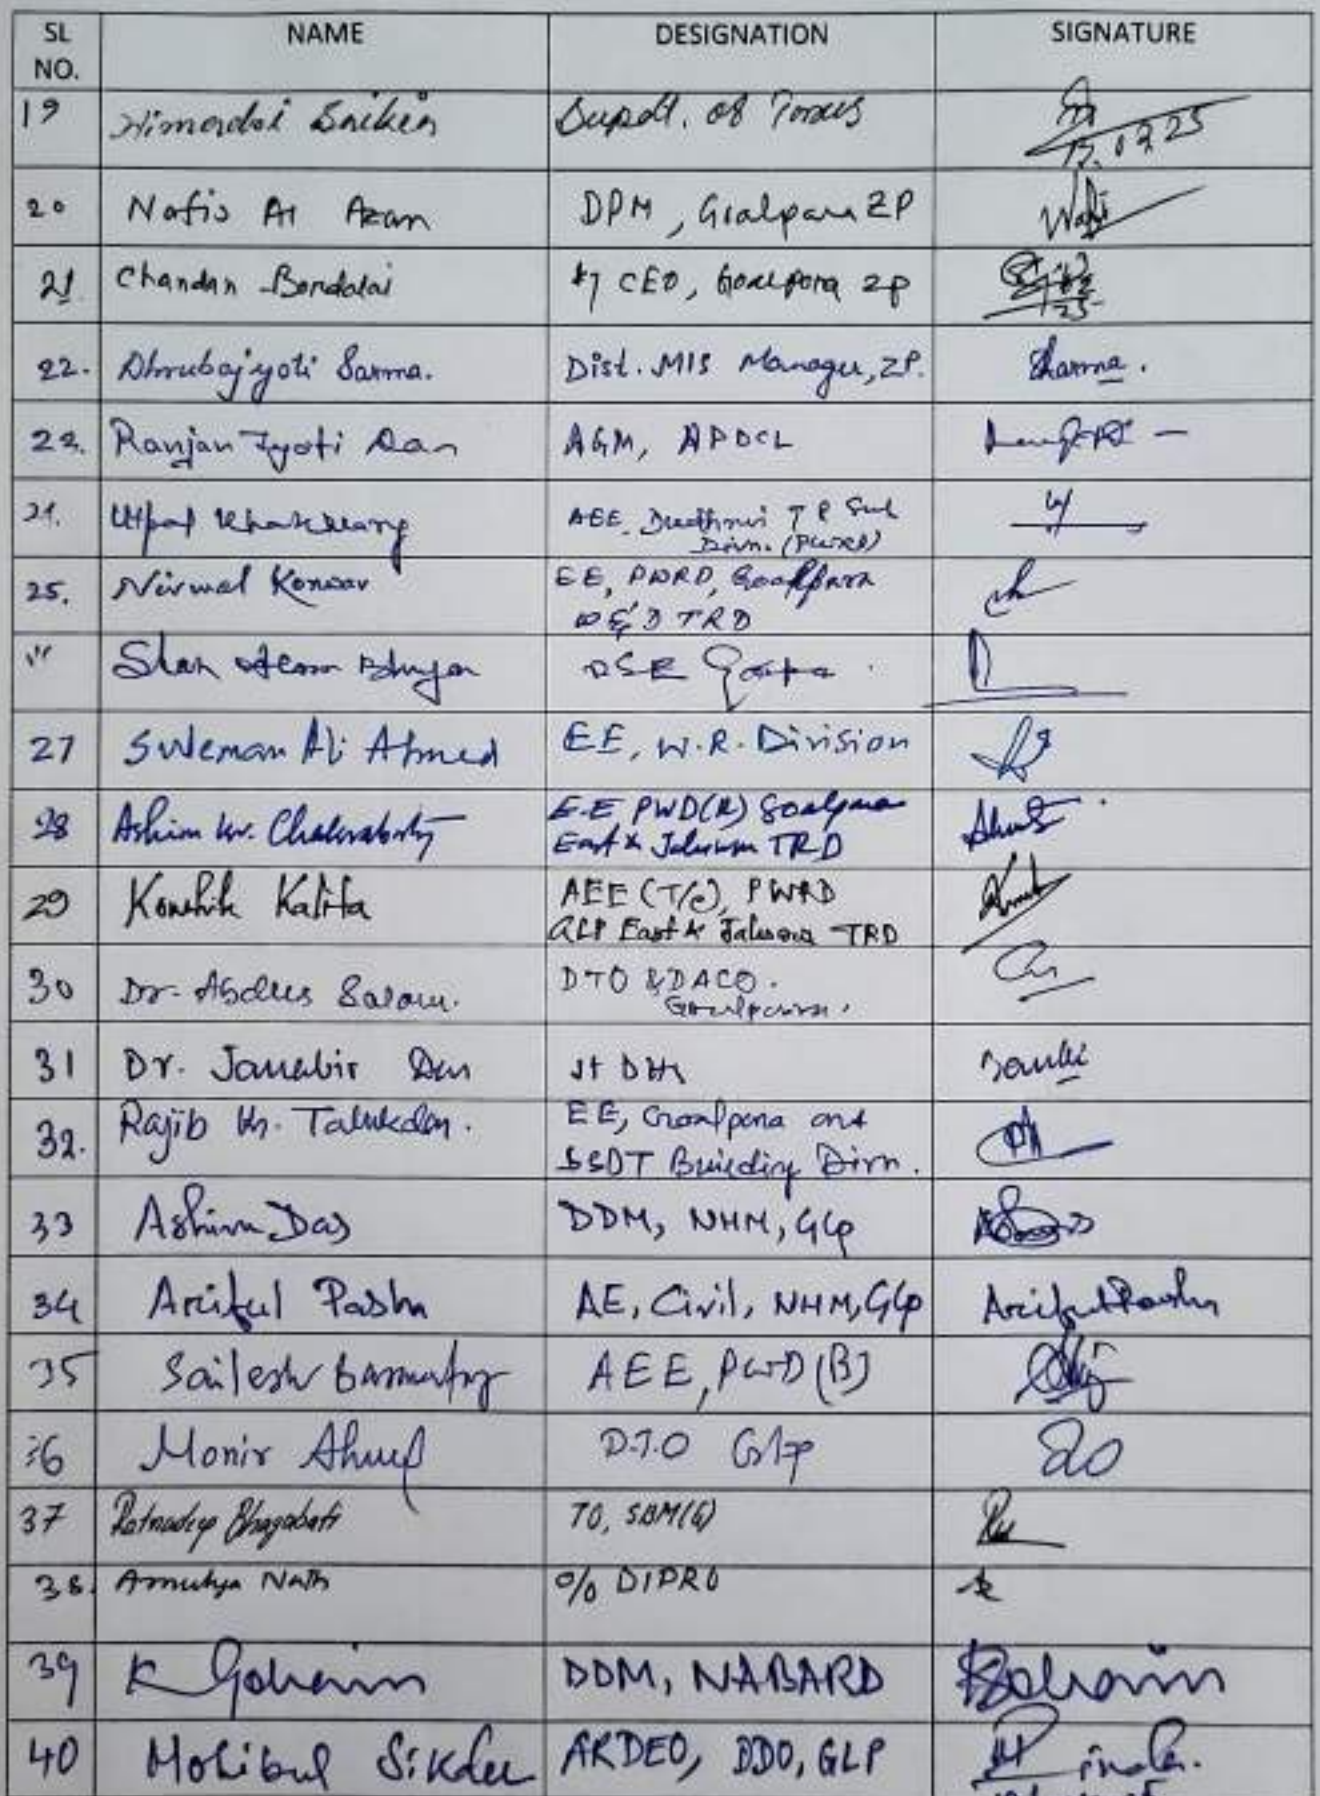 SL NO. NAME DESIGNATION SIGNATURE
19 Saikia Supdt. of
20 Nafis Al Azan DPM, Goalpara ZP
21 Chandan Bordoloi CEO, Goalpara ZP
22. Dhrubajyoti Sarma. Dist. MIS Manager, ZP. Sharma.
23. Ranjan Jyoti Das AGM, APDCL
24. Utpal AEE, Dudhnoi T R Sub
Divn. (PWRD)
25. Nirmal Konwar EE, PWRD, Goalpara
TRD
Bhuyan
27 Suleman Ali Ahmed EE, W.R. Division
28 Ashim Kr. Chakraborty E.E PWD(R) Goalpara
East & Jaleswar TRD
29 Koushik Kalita AEE (T/C), PWRD
GLP East & Jaleswar TRD
30 Dr. Abdus Salam. DTO & DACO.
Goalpara.
31 Dr. Das Jt
32. Rajib Kr. Talukdar. EE, Goalpara and
Building Divn.
33 Ashim Das DDM, NHM, Glp
34 Ariful Pasha AE, Civil, NHM, Glp Ariful Pasha
35 Sailesh Basumatary AEE, PWD (B)
36 Monir Ahmed D.T.O Glp
37 Ratnadeep Bhagabati TO, SBM(G)
38. Amulya Nath O/o DIPRO
39 K Gohain DDM, NABARD KGohain
40 Mohibul Sikder ARDEO, DDO, GLP